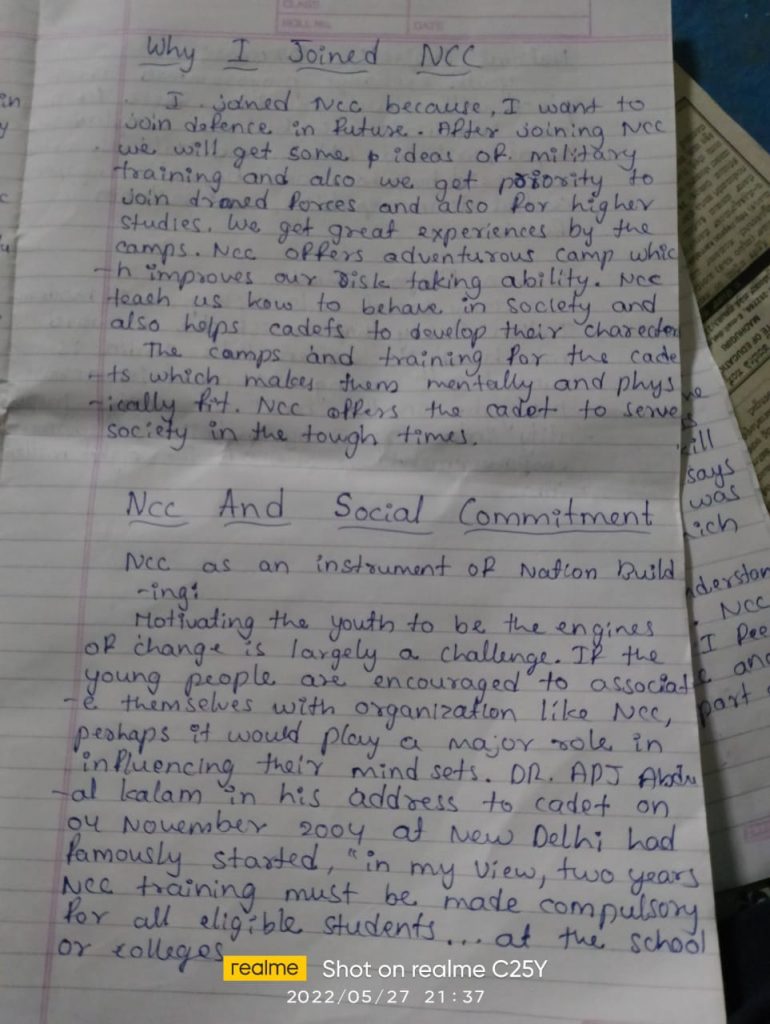 CLASS
ROLL No.
DATE
Why I Joined NCC
I joined NCC because, I want to
join defence in future. After joining NCC
we will get some p ideas of military
training and also we get priority to
join draned forces and also for higher
studies. We get great experiences by the
camps. NCC offers adventurous camp whic
-h improves our risk taking ability. NCC
teach us how to behave in society and
also helps cadets to develop their charecter
The camps and training for the cade
-ts which makes them mentally and phys
-ically fit. NCC offers the cadet to serve
society in the tough times.
NCC And Social Commitment
NCC as an instrument of Nation Build
-ing:
Motivating the youth to be the engines
of change is largely a challenge. If the
young people are encouraged to associat
-e themselves with organization like NCC,
perhaps it would play a major role in
influencing their mind sets. DR. APJ Abdu
-al kalam in his address to cadet on
04 November 2004 at New Delhi had
famously started, "in my view, two years
NCC training must be made compulsory
for all eligible students... at the school
or colleges
says
was
NCC
part
realme Shot on realme C25Y
2022/05/27 21:37